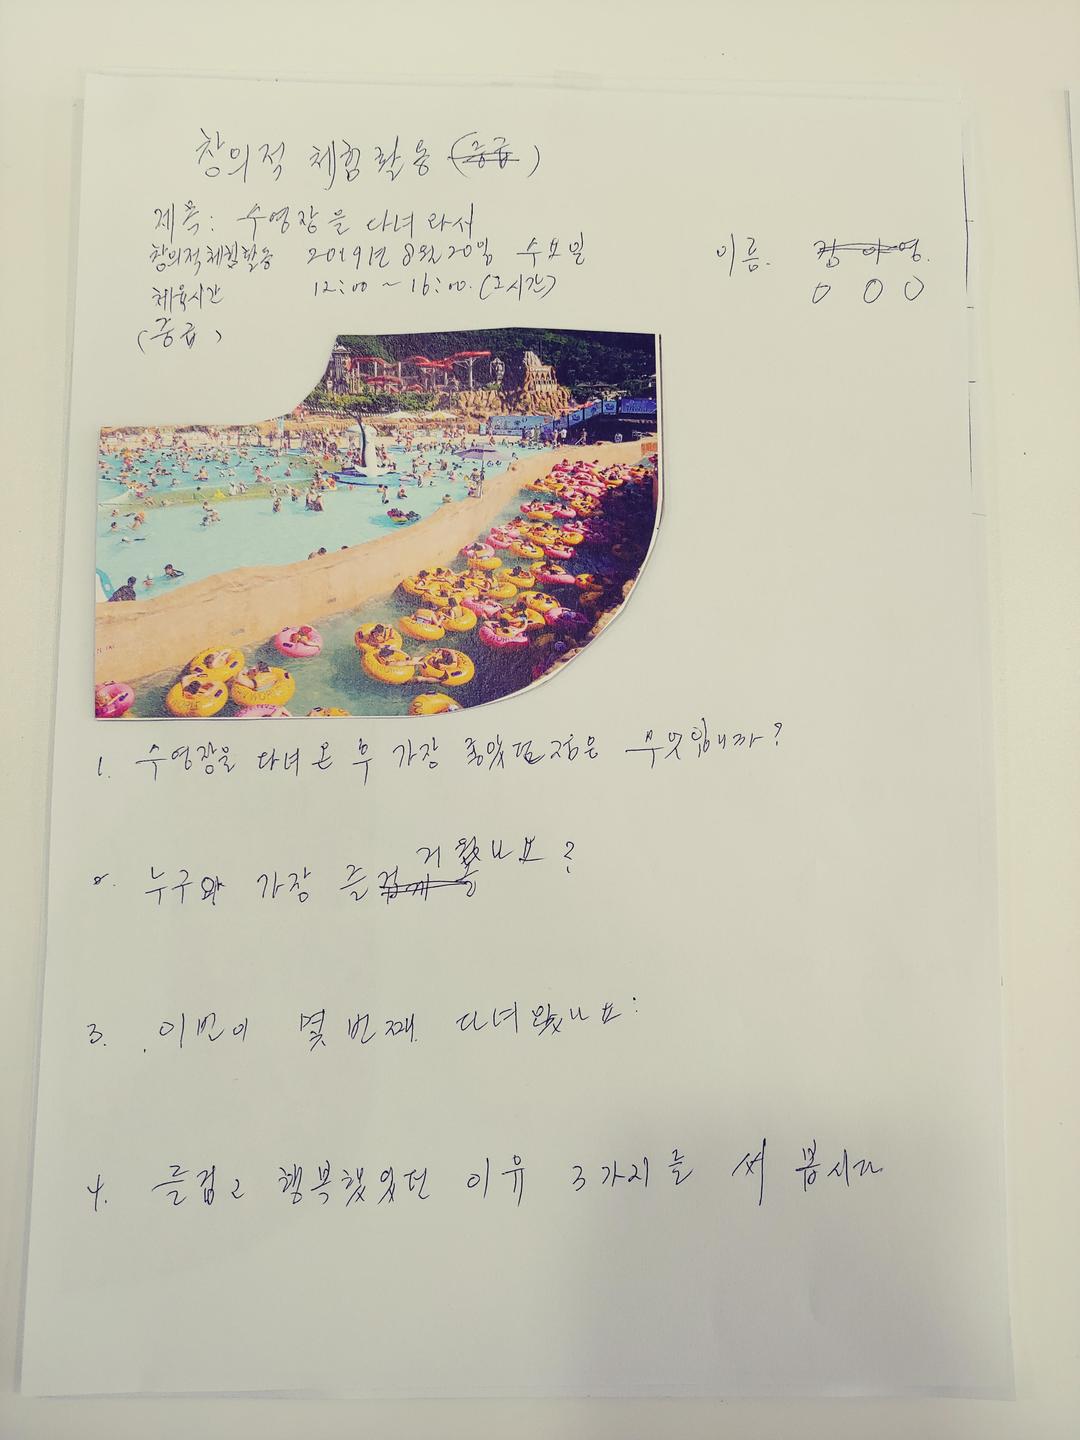 창의적 체험활동 (중급)
제목: 수영장을 다녀 와서
창의적체험활동 2019년 8월 20일 수요일
이름. 김아영.
체육시간 12:00 ~ 16:00. (2시간)
0 0 0
(중급)
1. 수영장을 다녀 온 후 가장 좋았던 점은 무엇입니까?
거 웠나요?
2. 누구와 가장 즐겁게
3. 이번이 몇 번째 다녀왔나요:
4. 즐겁고 행복했었던 이유 3가지를 써 봅시다